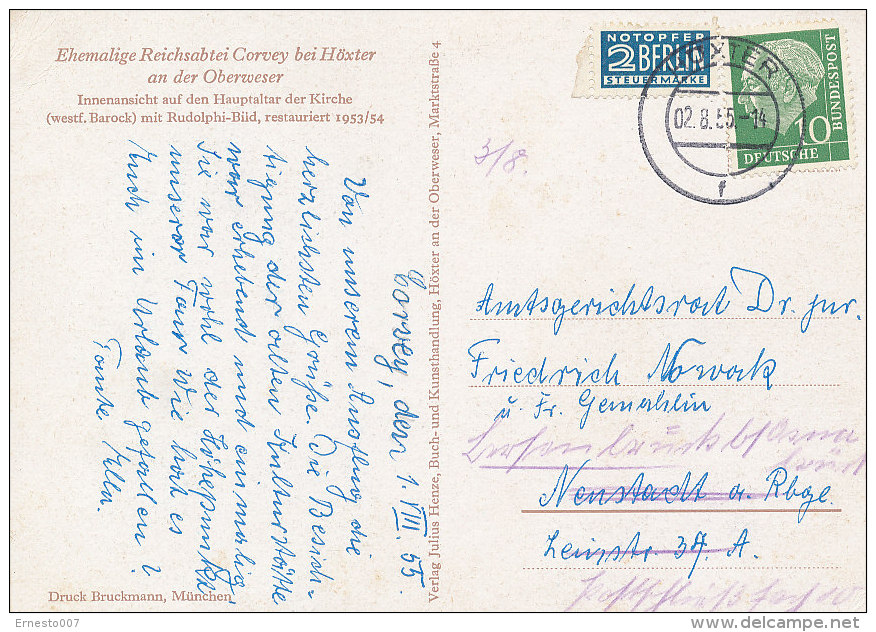 Ehemalige Reichsabtei Corvey bei Höxter
an der Oberweser
Innenansicht auf den Hauptaltar der Kirche
(westf. Barock) mit Rudolphi-Bild, restauriert 1953/54
Corvey, den 1. VIII. 55.
Von unserem Ausflug die
herzlichsten Grüße. Die Besich-
tigung der alten Kulturstätte
war erhebend und einmalig,
Sie war wohl der Höhepunkt
unserer Tour. Wie hat es
Euch im Urlaub gefallen?
Tante Ella.
Druck Bruckmann, München
Verlag Julius Henze, Buch- und Kunsthandlung, Höxter an der Oberweser, Marktstraße 4
NOTOPFER
2 BERLIN
STEUERMARKE
HÖXTER
02.8.55.-14
f
10
DEUTSCHE
BUNDESPOST
3/8.
Amtsgerichtsrat Dr. jur.
Friedrich Nowack
u. Fr. Gemahlin
Neustadt a. Rbge.
37. A.
Postschließfach
Ernesto007
delcampe.net